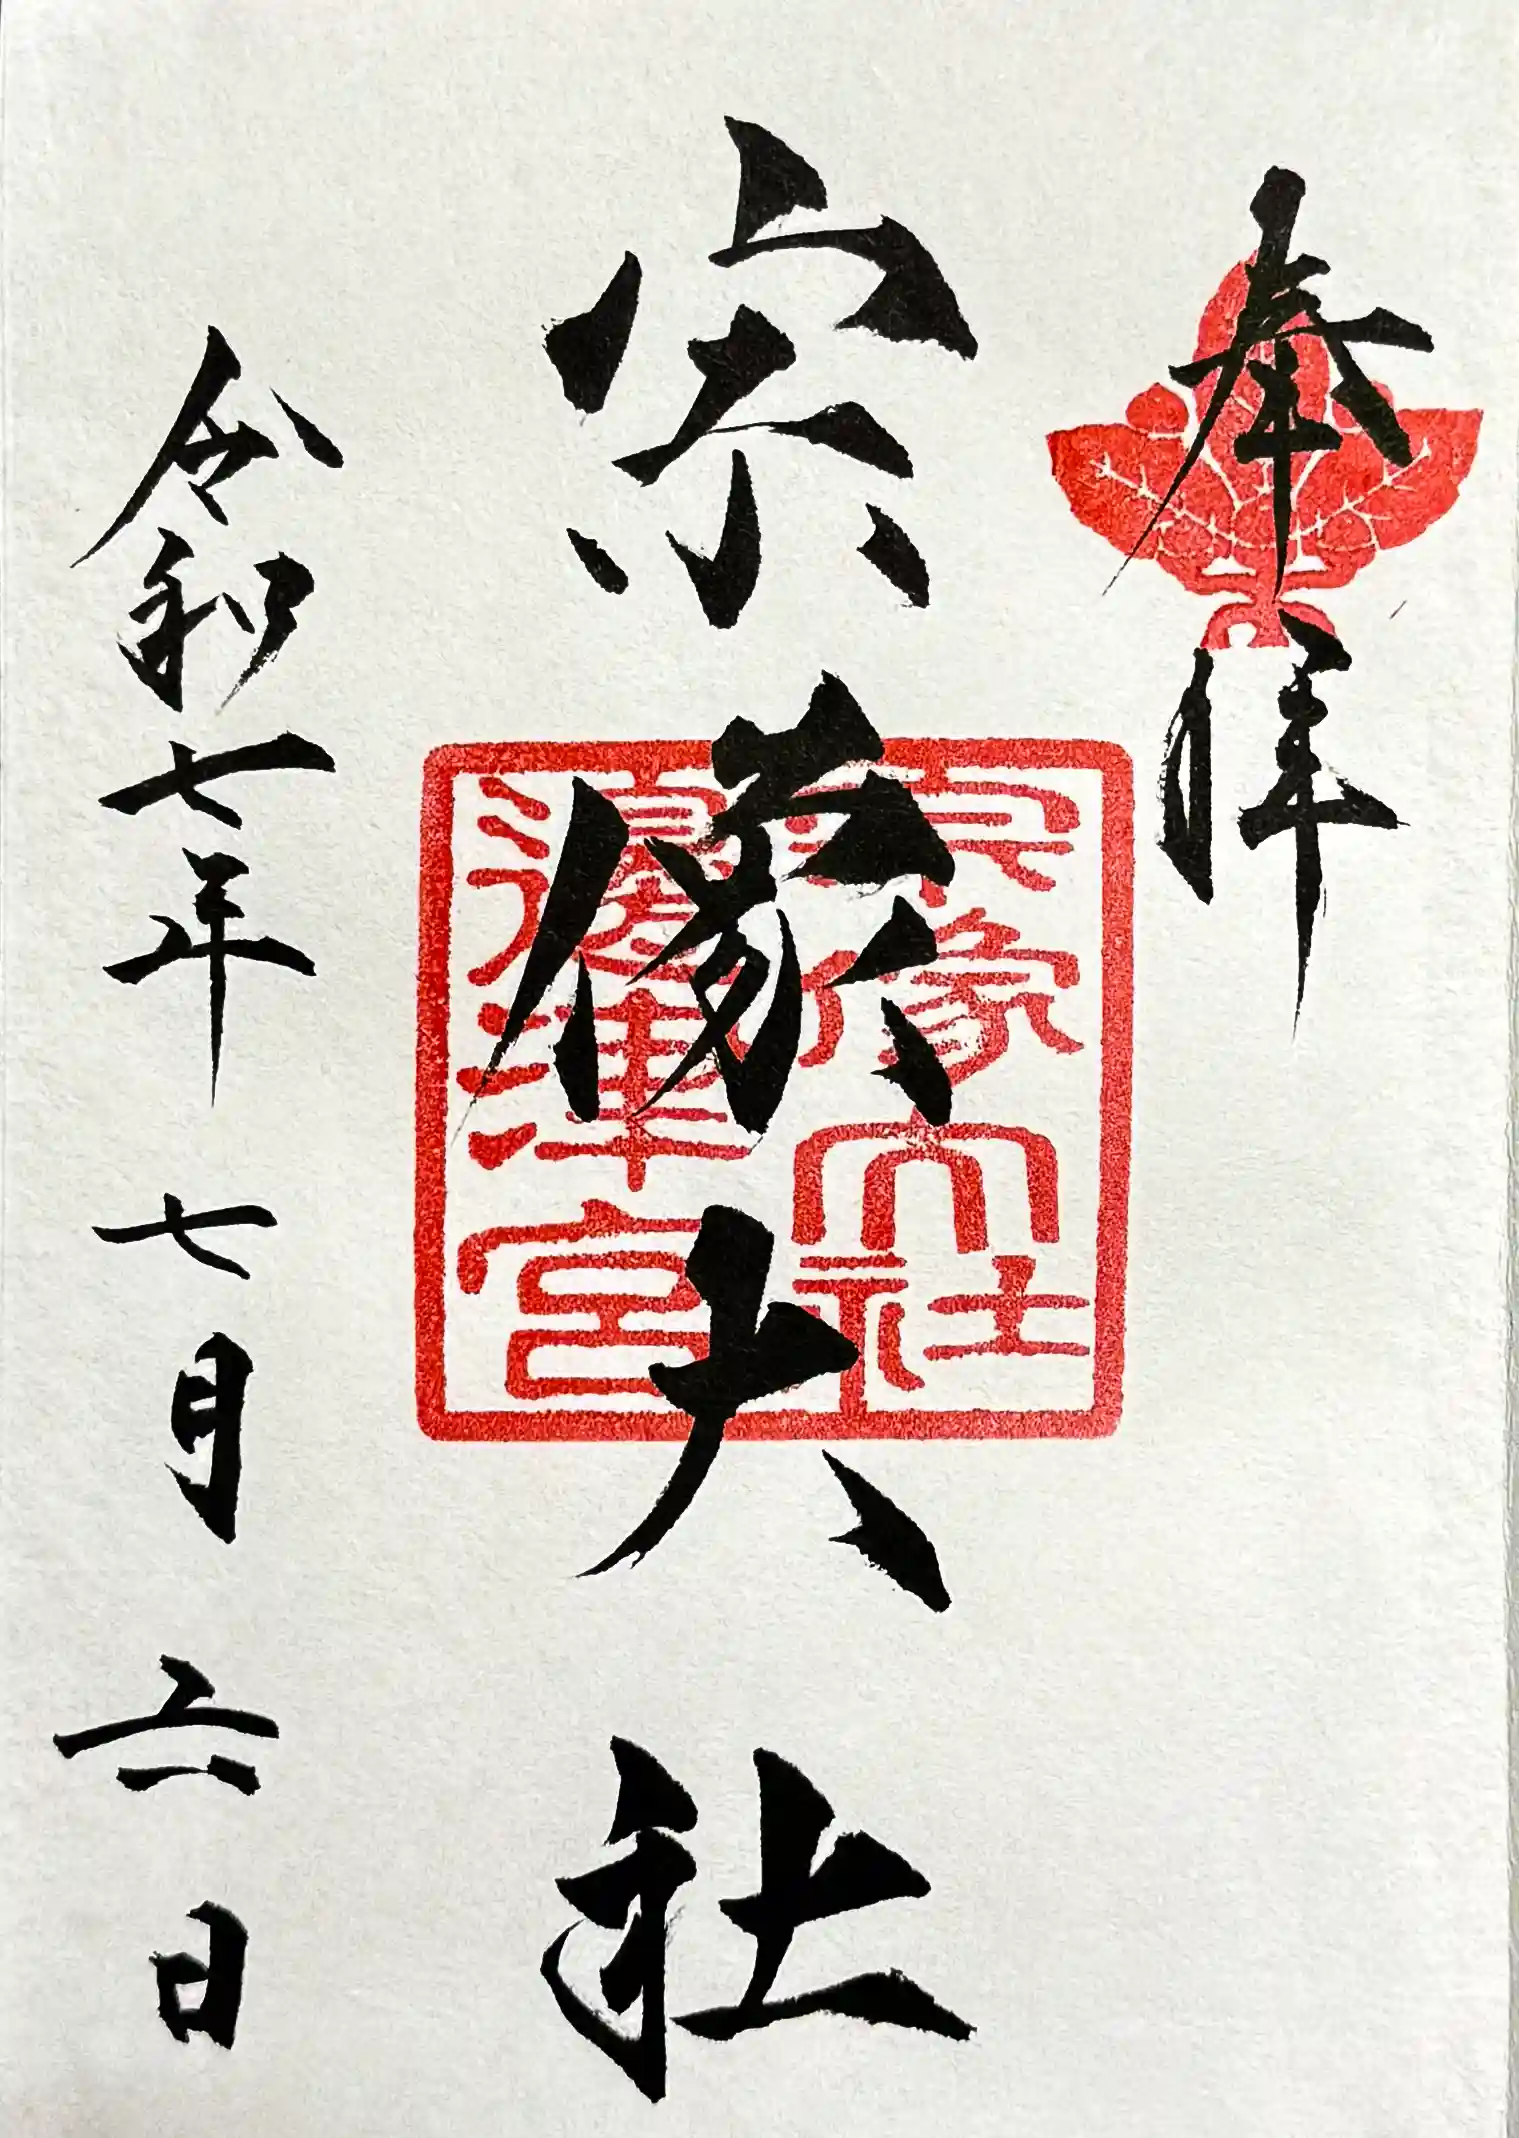 奉拝
宗像大社
宗像大社
邊津宮
令和七年 七月 六日